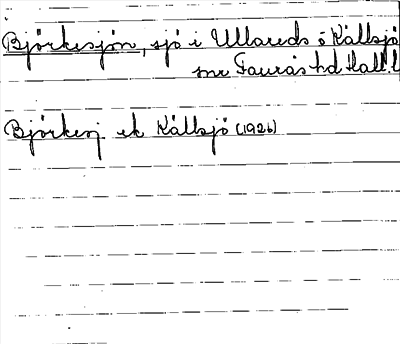 Björkesjön, sjö i Ullareds o Källsjö
snr Faurås hd Hall. l
Björkesj ek Källsjö (1926)